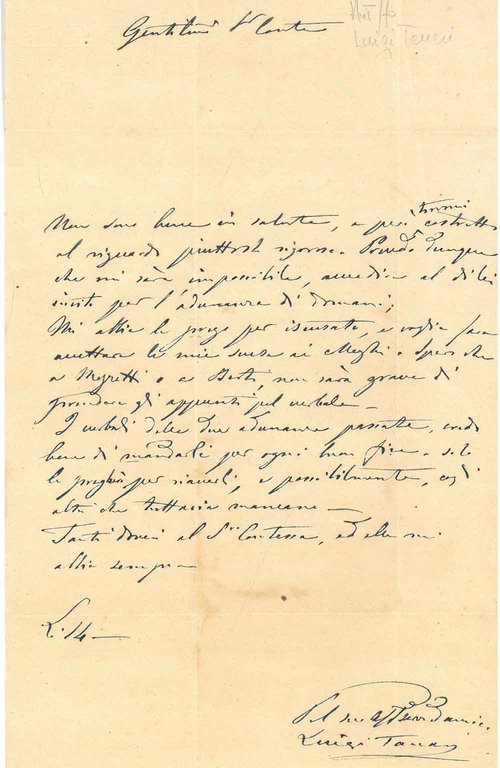 Gentilmo Sr Conte
Luigi Tanari
Non sono bene in salute, e però trovomi costretto
al riguardo piuttosto rigoroso. Prevedo dunque
che mi sarà impossibile, accedere al di lei
invito per l'adunanza di domani;
Mi abbia la prego per iscusato, e voglia fare
accettare le mie scuse ai Colleghi. Spero che
a o a Berti, non sarà grave di
prendere gli appunti pel verbale —
I verbali delle due adunanze passate, credo
bene di mandarli per ogni buon fine. Solo
la pregherò per riaverli, e possibilmente, cogli
altri che tuttavia mancano —
Tanti doveri al Sra Contessa, ed ella mi
abbia sempre —
L. 14 —
Pel suo Affmo Servo Amico
Luigi Tanari